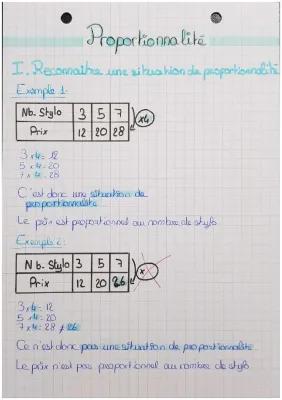 Proportionnalité
I. Reconnaître une situation de proportionnalité
Exemple 1:
Nb. Stylo 3 5 7
Prix 12 20 28
x4
3 x 4 = 12
5 x 4 = 20
7 x 4 = 28
C'est donc une situation de
proportionnalité
Le prix est proportionnel au nombre de stylo.
Exemple 2:
Nb. Stylo 3 5 7
Prix 12 20 26
x
3 x 4 = 12
5 x 4 = 20
7 x 4 = 28 ≠ 26
Ce n'est donc pas une situation de proportionnalité.
Le prix n'est pas proportionnel au nombre de stylo.